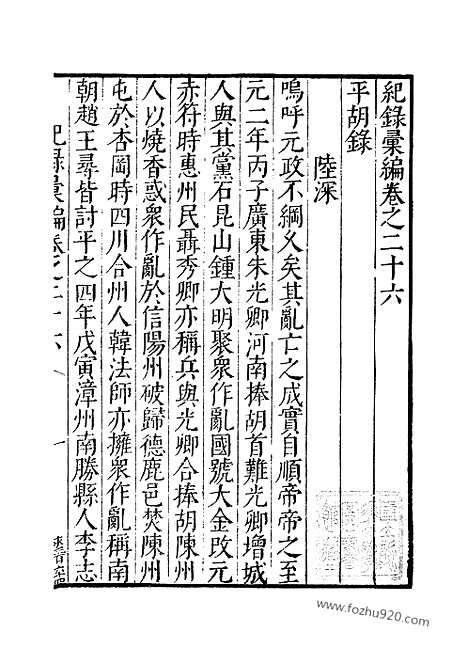 紀錄彙編卷之二十六
平胡錄
陸深
嗚呼元政不綱久矣其亂亡之成實自順帝帝之至
元二年丙子廣東朱光卿河南捧胡首難光卿增城
人與其黨石昆山鍾大明聚衆作亂國號大金改元
赤符時惠州民聶秀卿亦稱兵與光卿合捧胡陳州
人以燒香惑衆作亂於信陽州破歸德鹿邑焚陳州
屯於杏岡時四川合州人韓法師亦擁衆作亂稱南
朝趙王尋皆討平之四年戊寅漳州南勝縣人李志
紀錄彙編卷之二十六
一
www.fozhu920.com